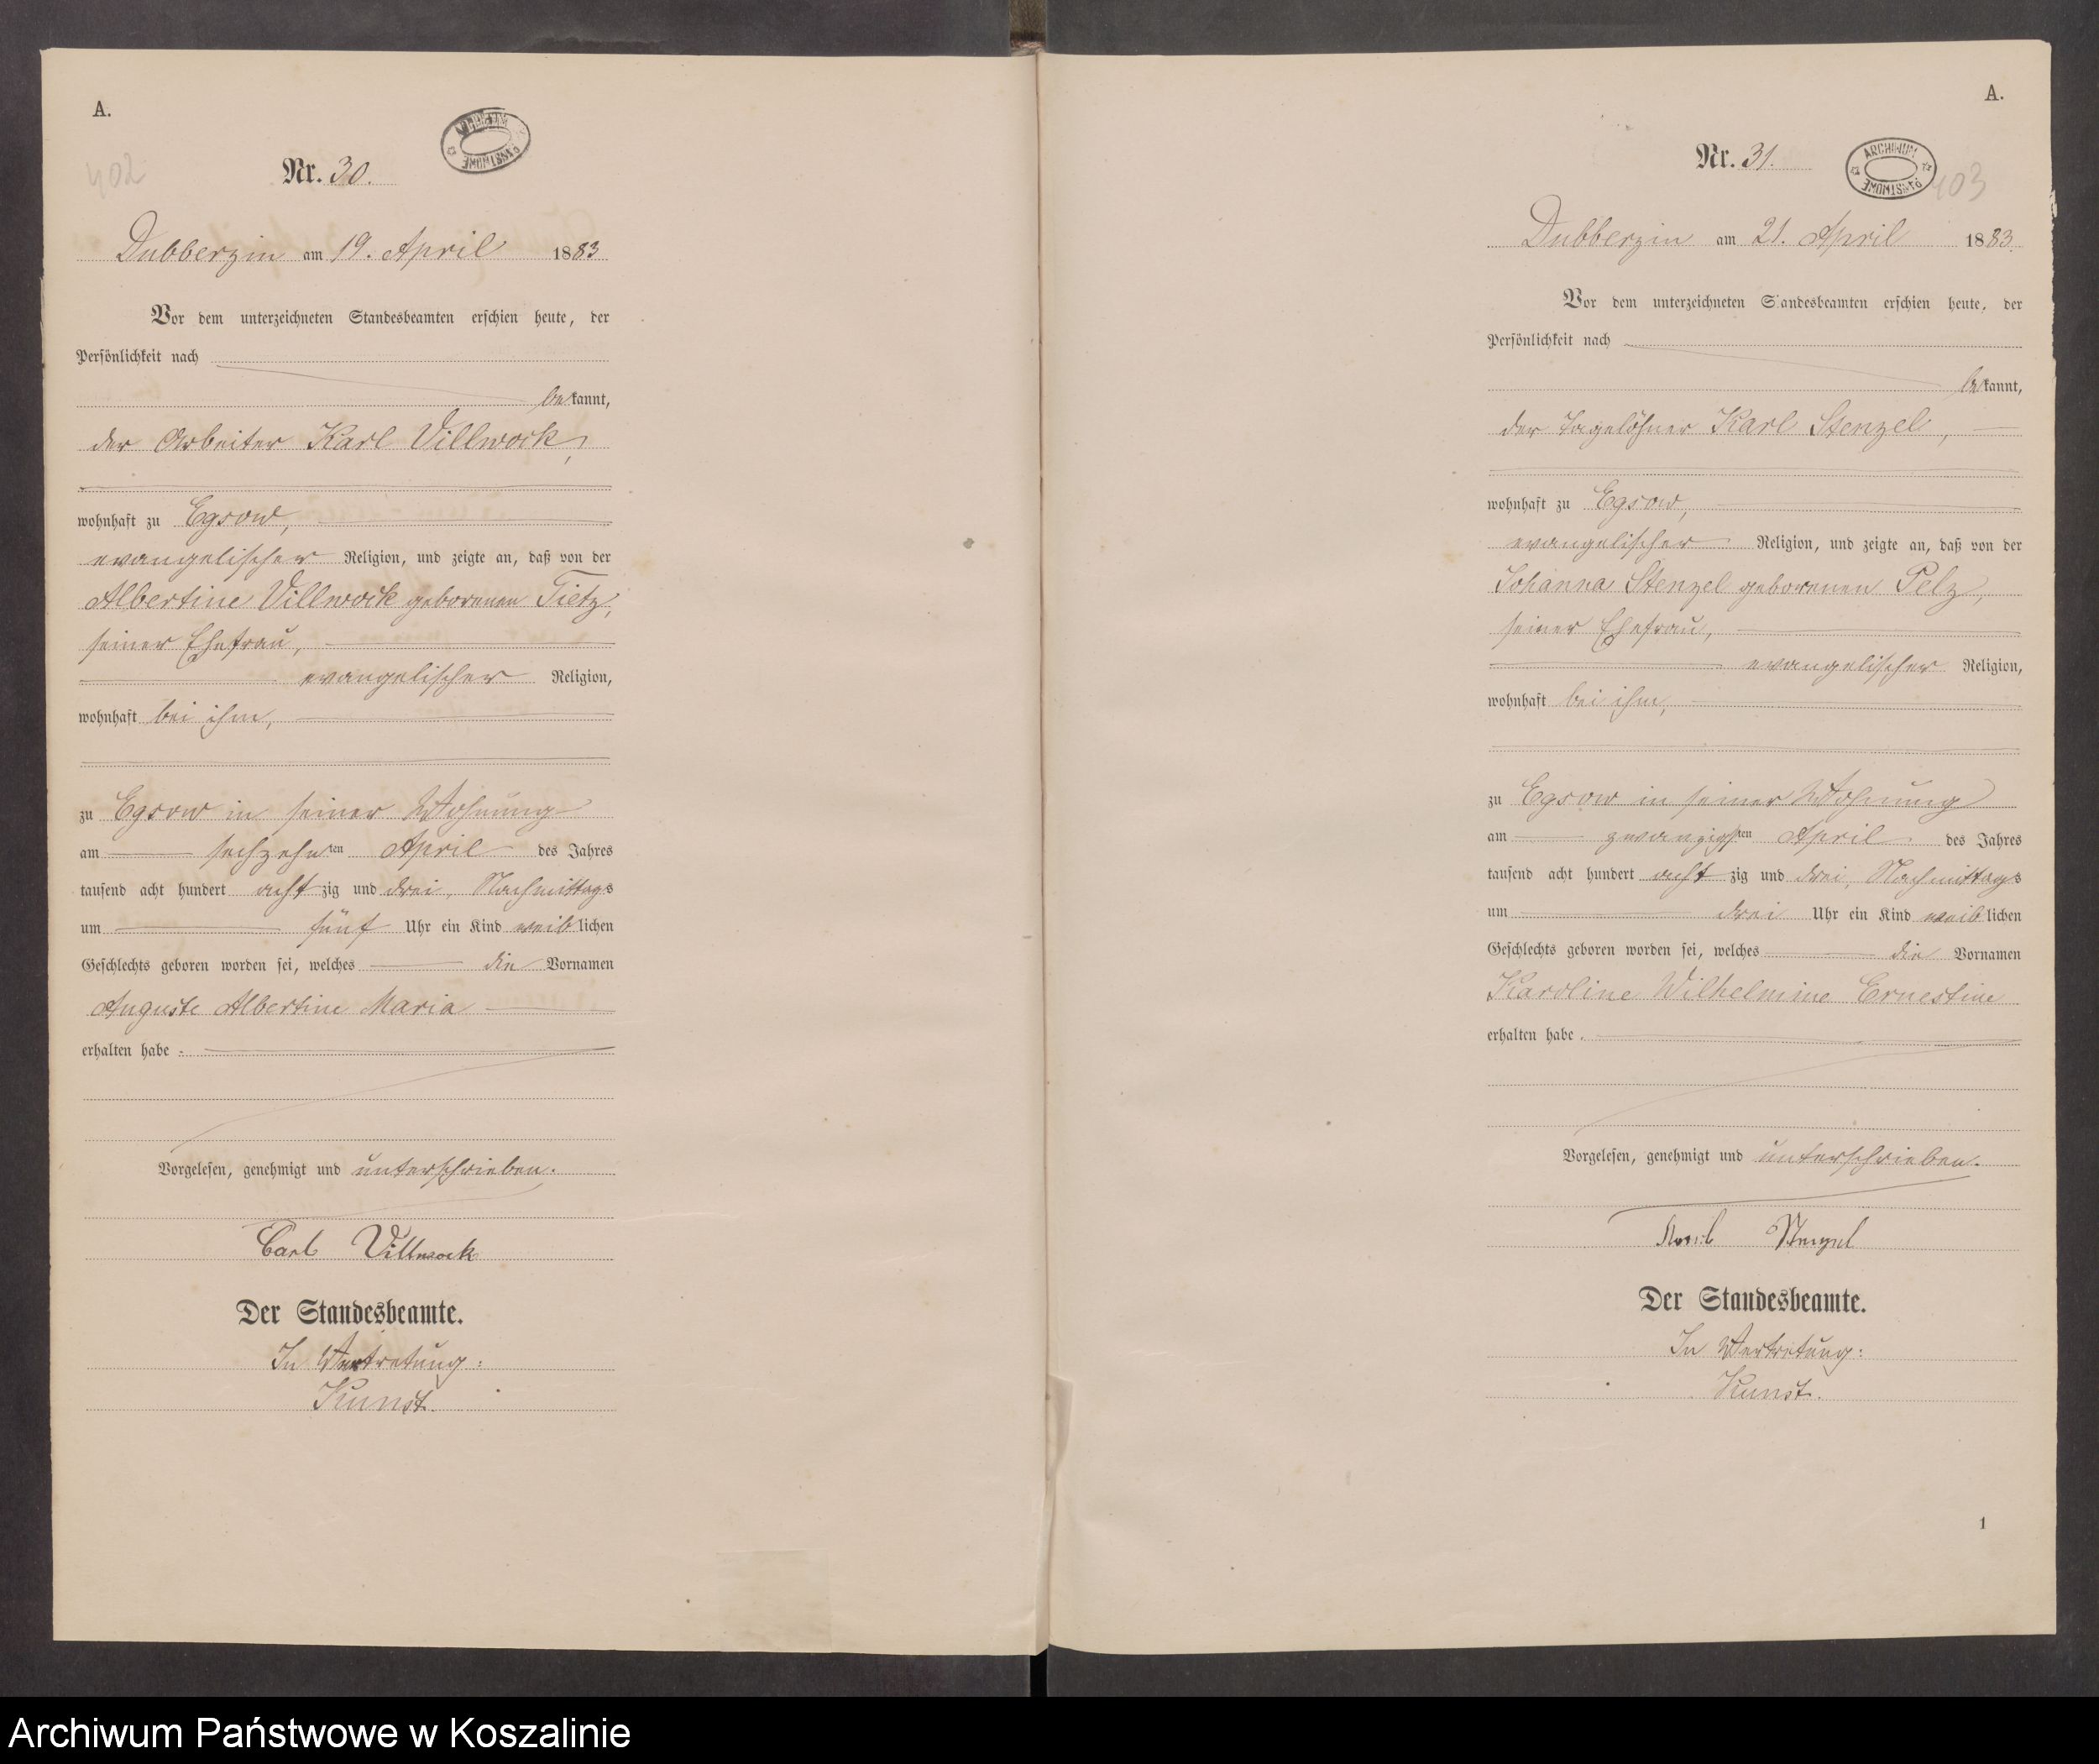 A.
402
Nr. 30.
Dubberzin am 19. April 1883
Vor dem unterzeichneten Standesbeamten erschien heute, der
Persönlichkeit nach
bekannt,
der Arbeiter Karl Villwock,
wohnhaft zu Egsow,
evangelischer Religion, und zeigte an, daß von der
Albertine Villwock geborenen Tietz,
seiner Ehefrau,
evangelischer Religion,
wohnhaft bei ihm,
zu Egsow in seiner Wohnung
am sechzehnten April des Jahres
tausend acht hundert achtzig und drei, Nachmittags
um fünf Uhr ein Kind weiblichen
Geschlechts geboren worden sei, welches die Vornamen
Auguste Albertine Maria
erhalten habe.
Vorgelesen, genehmigt und unterschrieben.
Carl Villwock
Der Standesbeamte.
In Vertretung:
Kunst.
A.
Nr. 31.
ARCHIWUM PAŃSTWOWE
403
Dubberzin am 21. April 1883
Vor dem unterzeichneten Standesbeamten erschien heute, der
Persönlichkeit nach
bekannt,
der Tagelöhner Karl Stenzel,
wohnhaft zu Egsow,
evangelischer Religion, und zeigte an, daß von der
Johanna Stenzel geborenen Pelz,
seiner Ehefrau,
evangelischer Religion,
wohnhaft bei ihm,
zu Egsow in seiner Wohnung
am zwanzigsten April des Jahres
tausend acht hundert achtzig und drei, Nachmittags
um drei Uhr ein Kind weiblichen
Geschlechts geboren worden sei, welches die Vornamen
Karoline Wilhelmine Ernestine
erhalten habe.
Vorgelesen, genehmigt und unterschrieben.
Karl Stenzel
Der Standesbeamte.
In Vertretung:
Kunst.
1
Archiwum Państwowe w Koszalinie